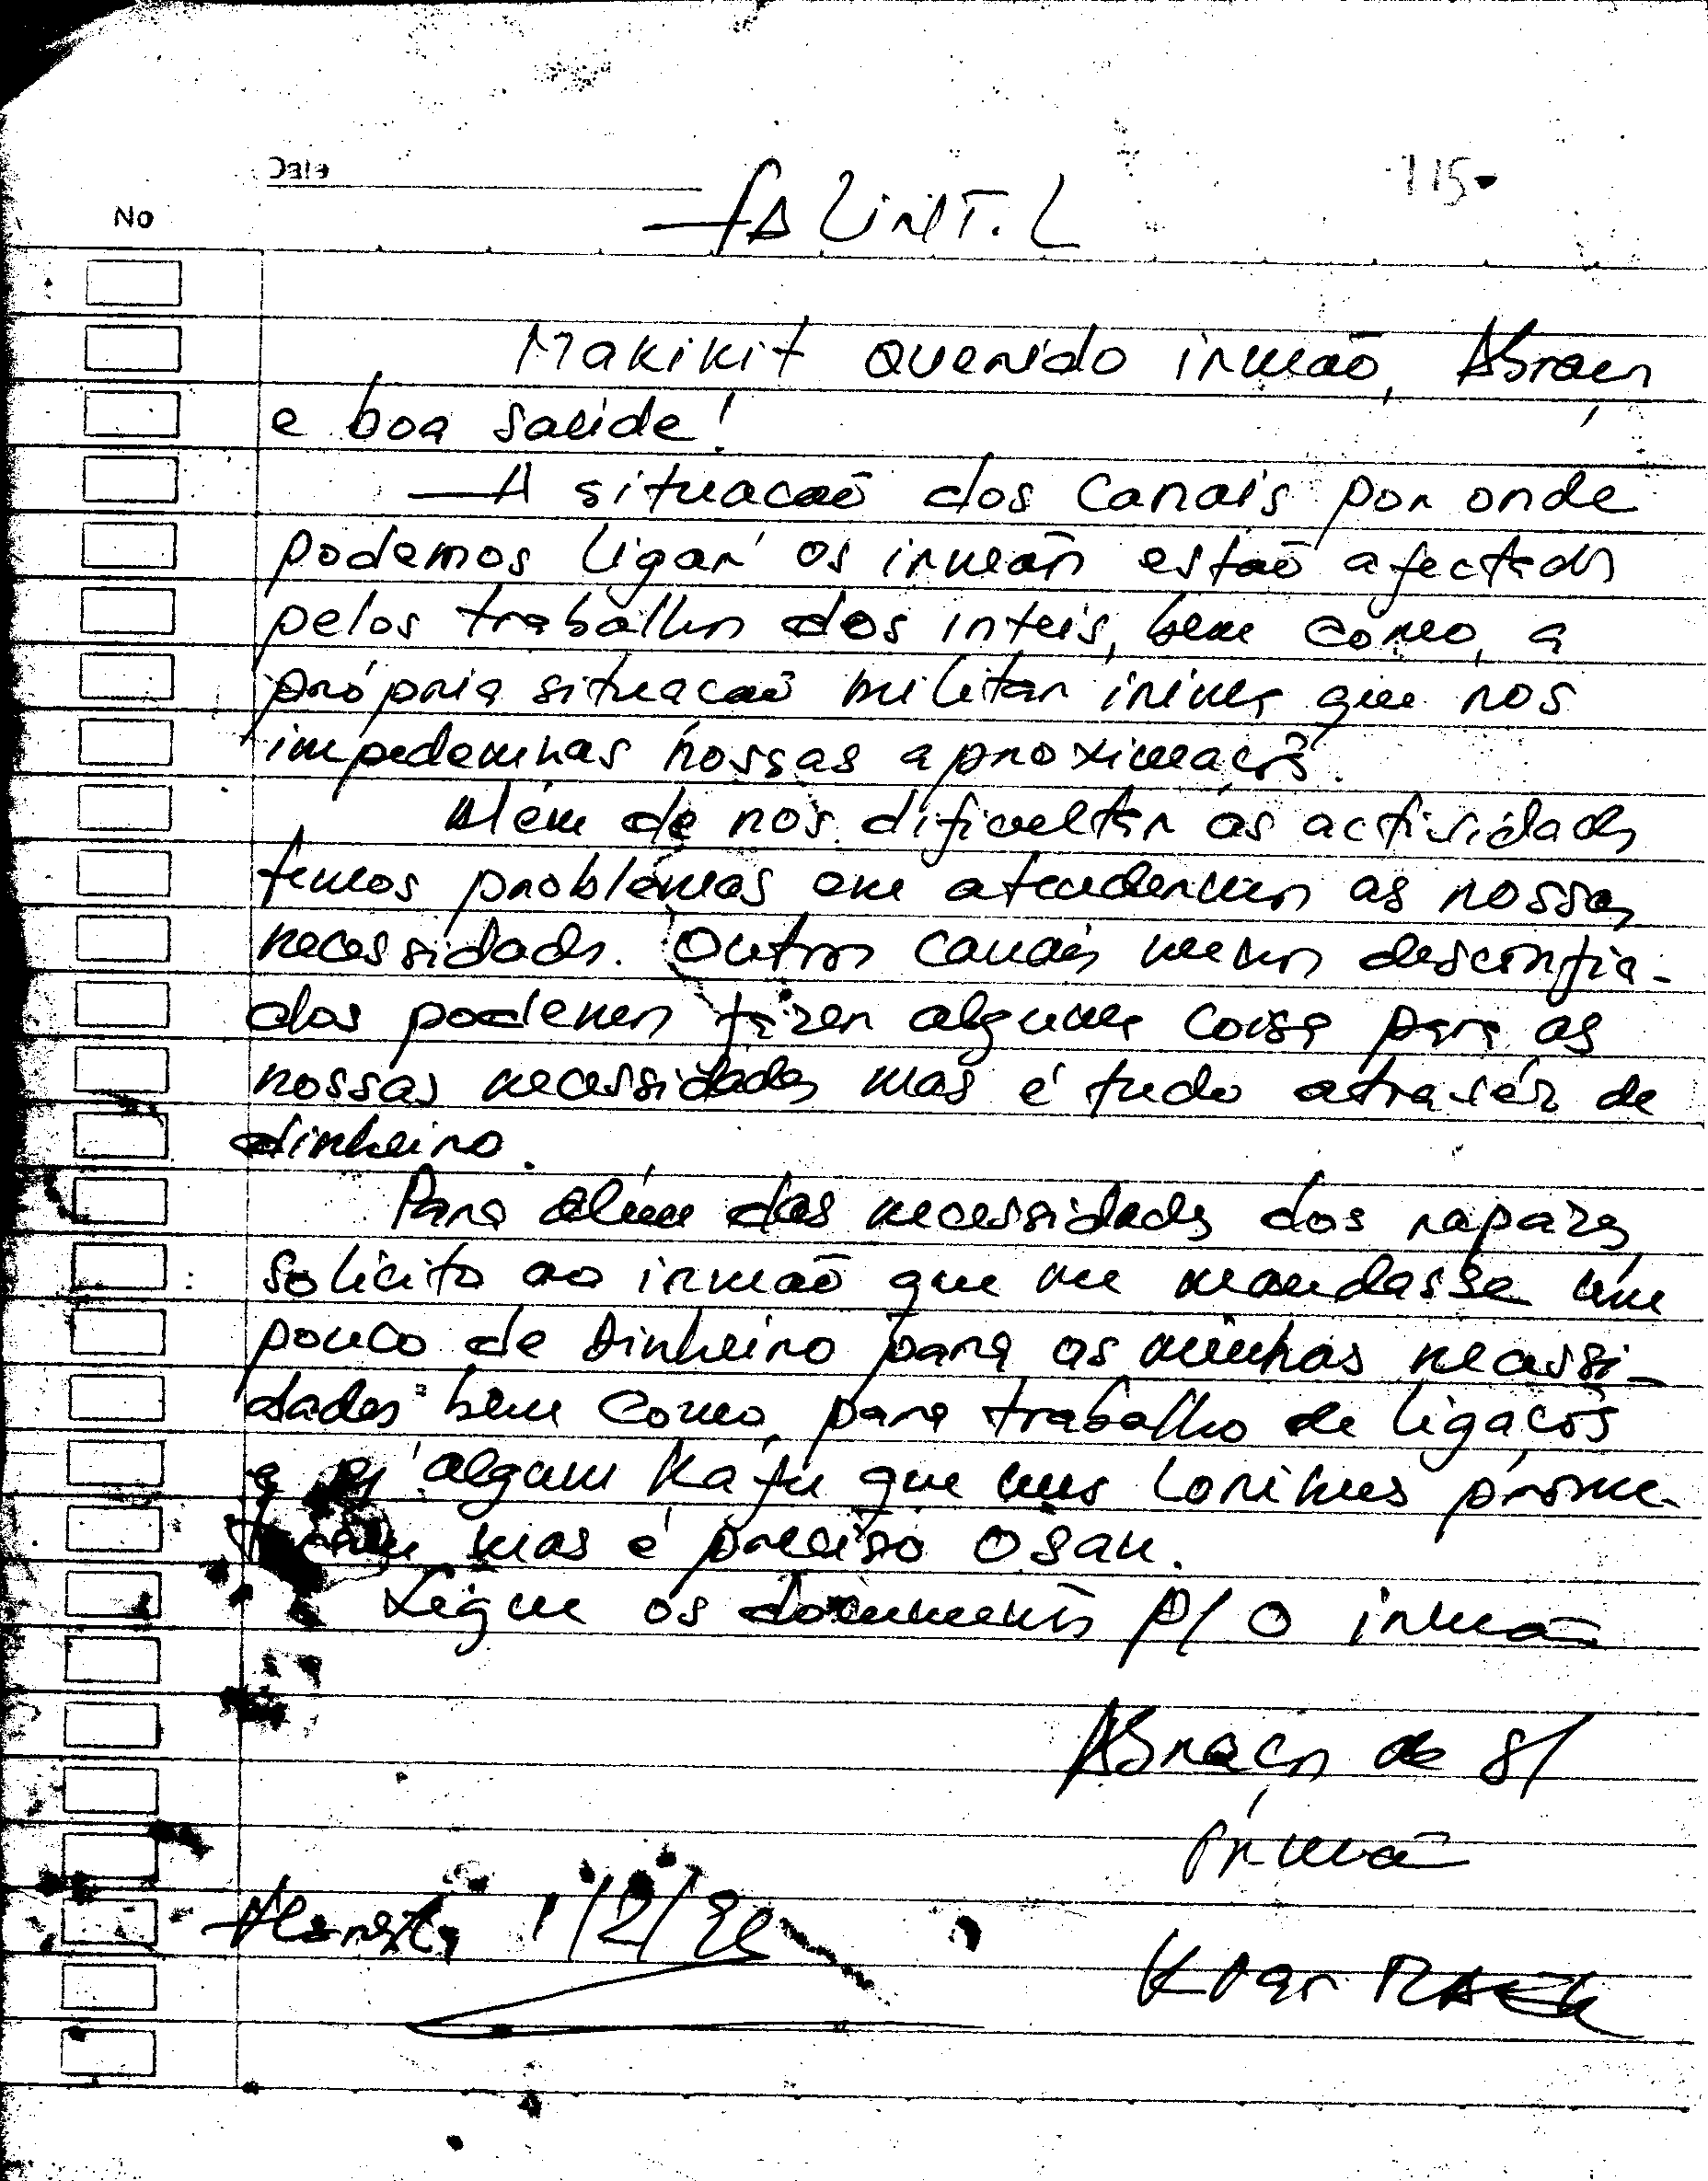 Date
115-
No
FALINT.L
Makikit querido irmão, Abraços
e boa saúde!
— A situacaõ dos Canais por onde
podemos ligar os irmaõs estaõ afectados
pelos trabalhos dos inteis, bem como, a
própria situacaõ militar inimiga que nos
impedem nas nossas aproximações.
Além de nos dificultar as actividades
temos problemas em atendermos as nossas
necessidades. Outros canais menos desconfia-
dos podemos fazer alguma coisa para as
nossas necessidades mas é tudo através de
dinheiro.
Para além das necessidades dos rapazes,
solicito ao irmaõ que me mandasse um
pouco de dinheiro para as minhas necessi-
dades bem como, para trabalho de ligações
e p/ algum Kafu que uns Lorihus prome-
mas é preciso osan.
Segue os documentos p/ o irmaõ
Abraços de s/
irmaõ
1/2/92